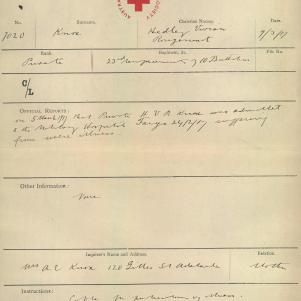 SOCIETY AUSTR
No. Surname. Christian Names.
7020 Knox Hedley Vivian 7/3/17
Rougemont
Rank. Battalion, &c. File No.
Private 23rd Reinforcements of 10 Battalion
C/L
OFFICIAL REPORTS:
on 5 March/17 that Private H. V. R. Knox was admitted
to the Military Hospital 24/2/17 suffering
from severe illness.
Other Information:
Inquirer's Name and Address. Relation.
Mrs A. E Knox 120 Gilles St Adelaide Mother
Instructions:
Cable for particulars of illness